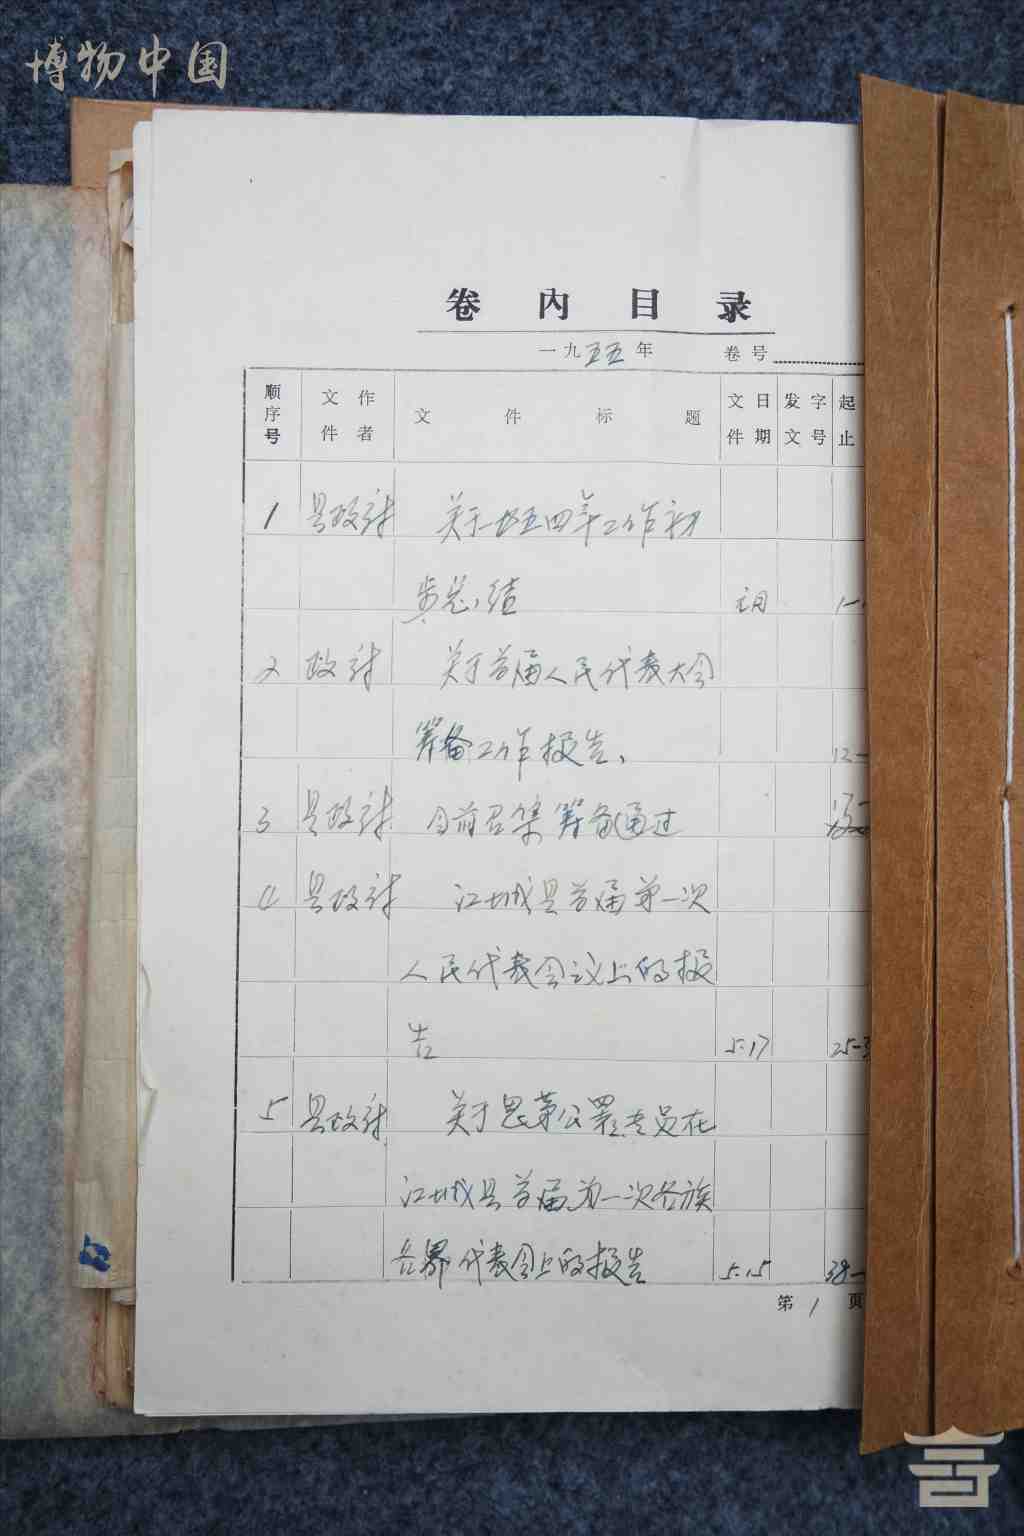 博物中国
卷内目录
一九五五年 卷号
顺序号 文件作者 文件标题 文件日期 发文字号 起止
1 县政府 关于一九五四年工作初
步总结 1-
2 政府 关于首届人民代表大会
筹备工作报告、 12-
3 县政府 目前召集筹备通过
4 县政府 江城县首届第一次
人民代表会议上的报
告 5.17 25-3
5 县政府 关于思茅公署专员在
江城县首届第一次各族
各界代表会上的报告 5.15 38-
第1页